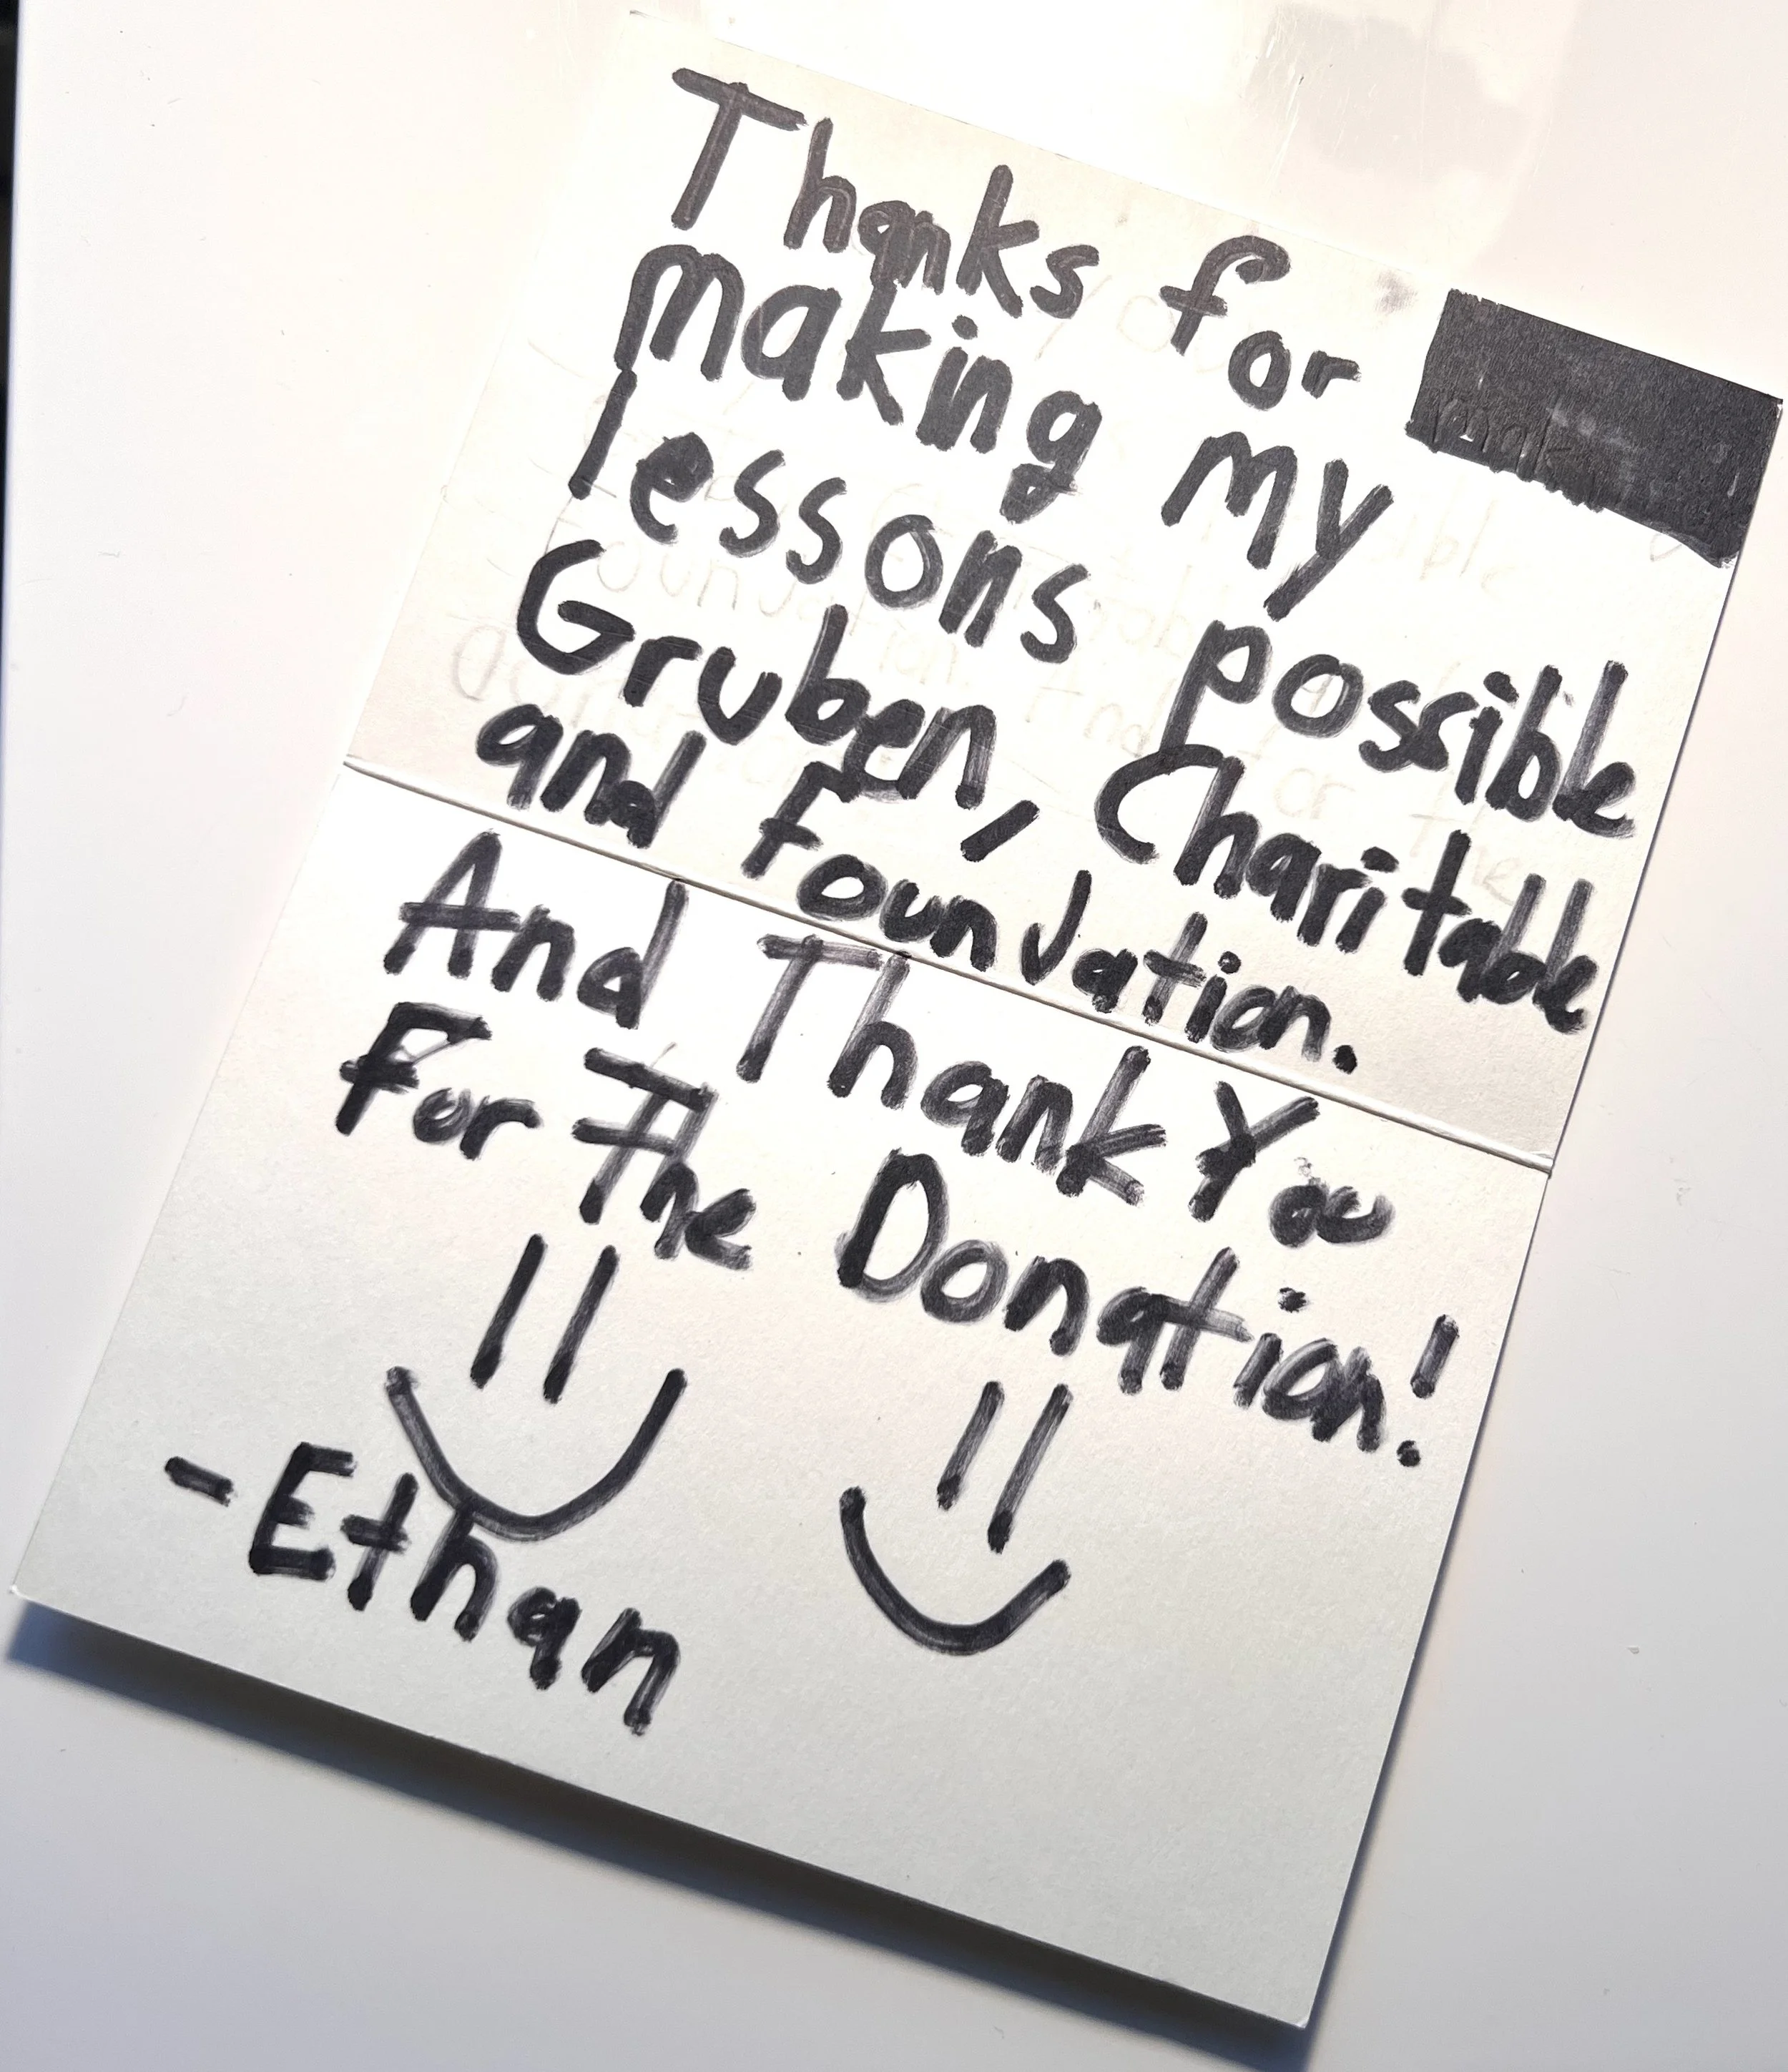 Thanks for
making my
lessons possible
Gruben, Charitable
and foundation.
And Thank You
For The Donation!
-Ethan